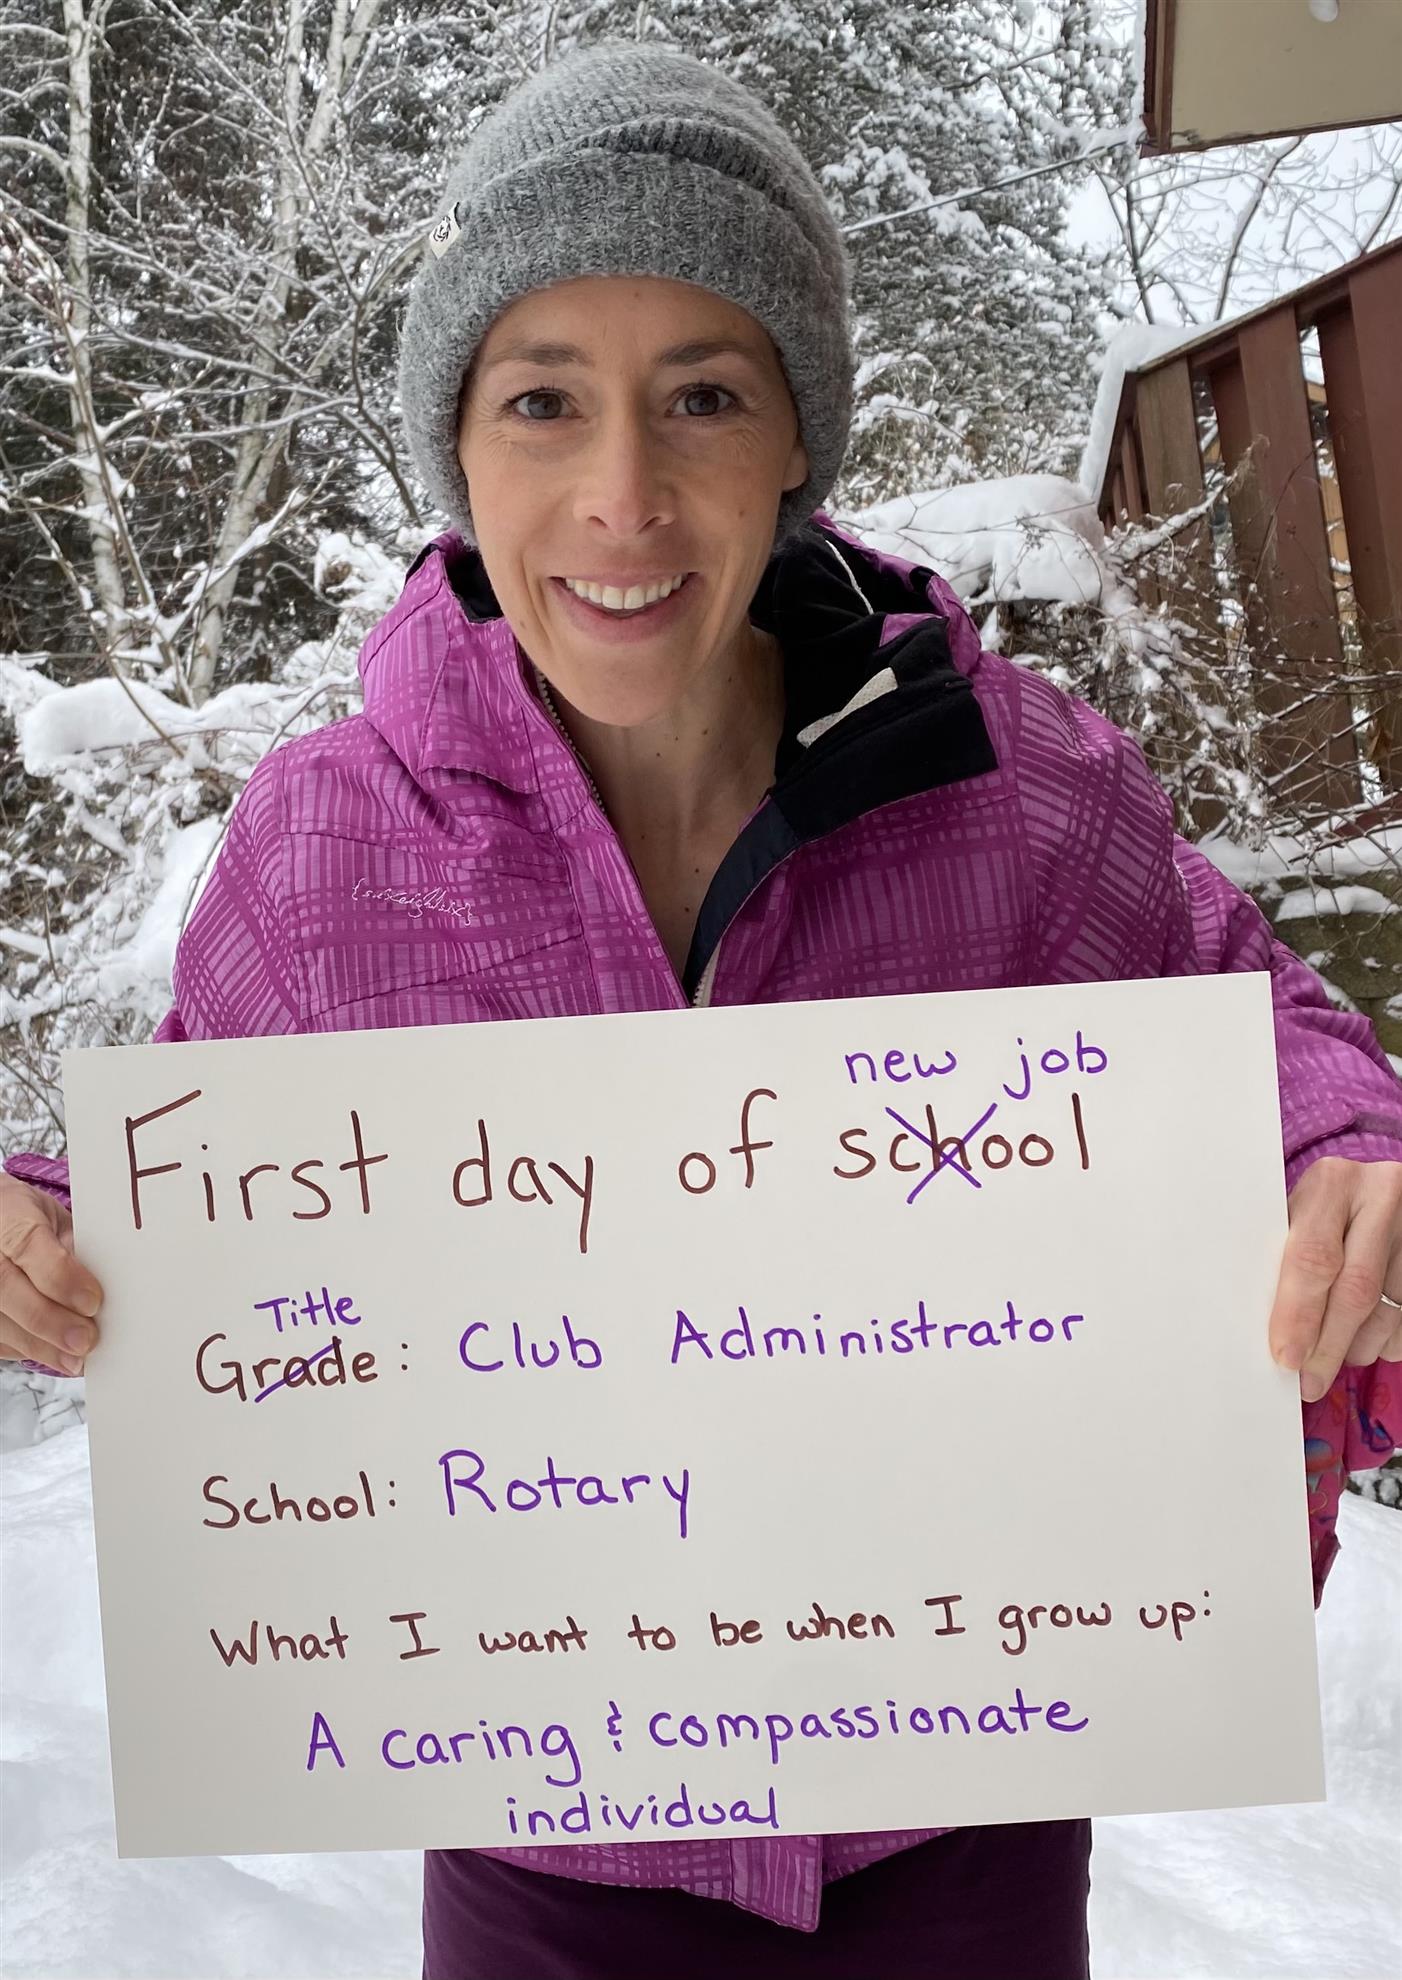 {sixeightsix}
new job
First day of school
Title
Grade: Club Administrator
School: Rotary
What I want to be when I grow up:
A caring & compassionate
individual